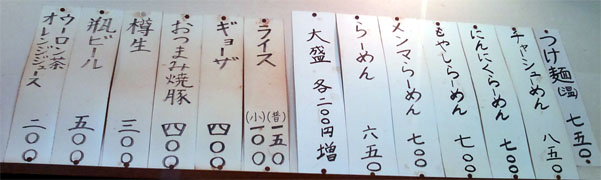 つけ麺(温) 七五〇
チャーシューめん 八五〇
にんにくらーめん 七〇〇
もやしらーめん 七〇〇
メンマらーめん 七〇〇
らーめん 六五〇
大盛 各二〇〇円増
ライス (普)一五〇 (小)一〇〇
ギョーザ 四〇〇
おつまみ焼豚 四〇〇
樽生 三〇〇
瓶ビール 五〇〇
ウーロン茶 オレンジジュース 二〇〇